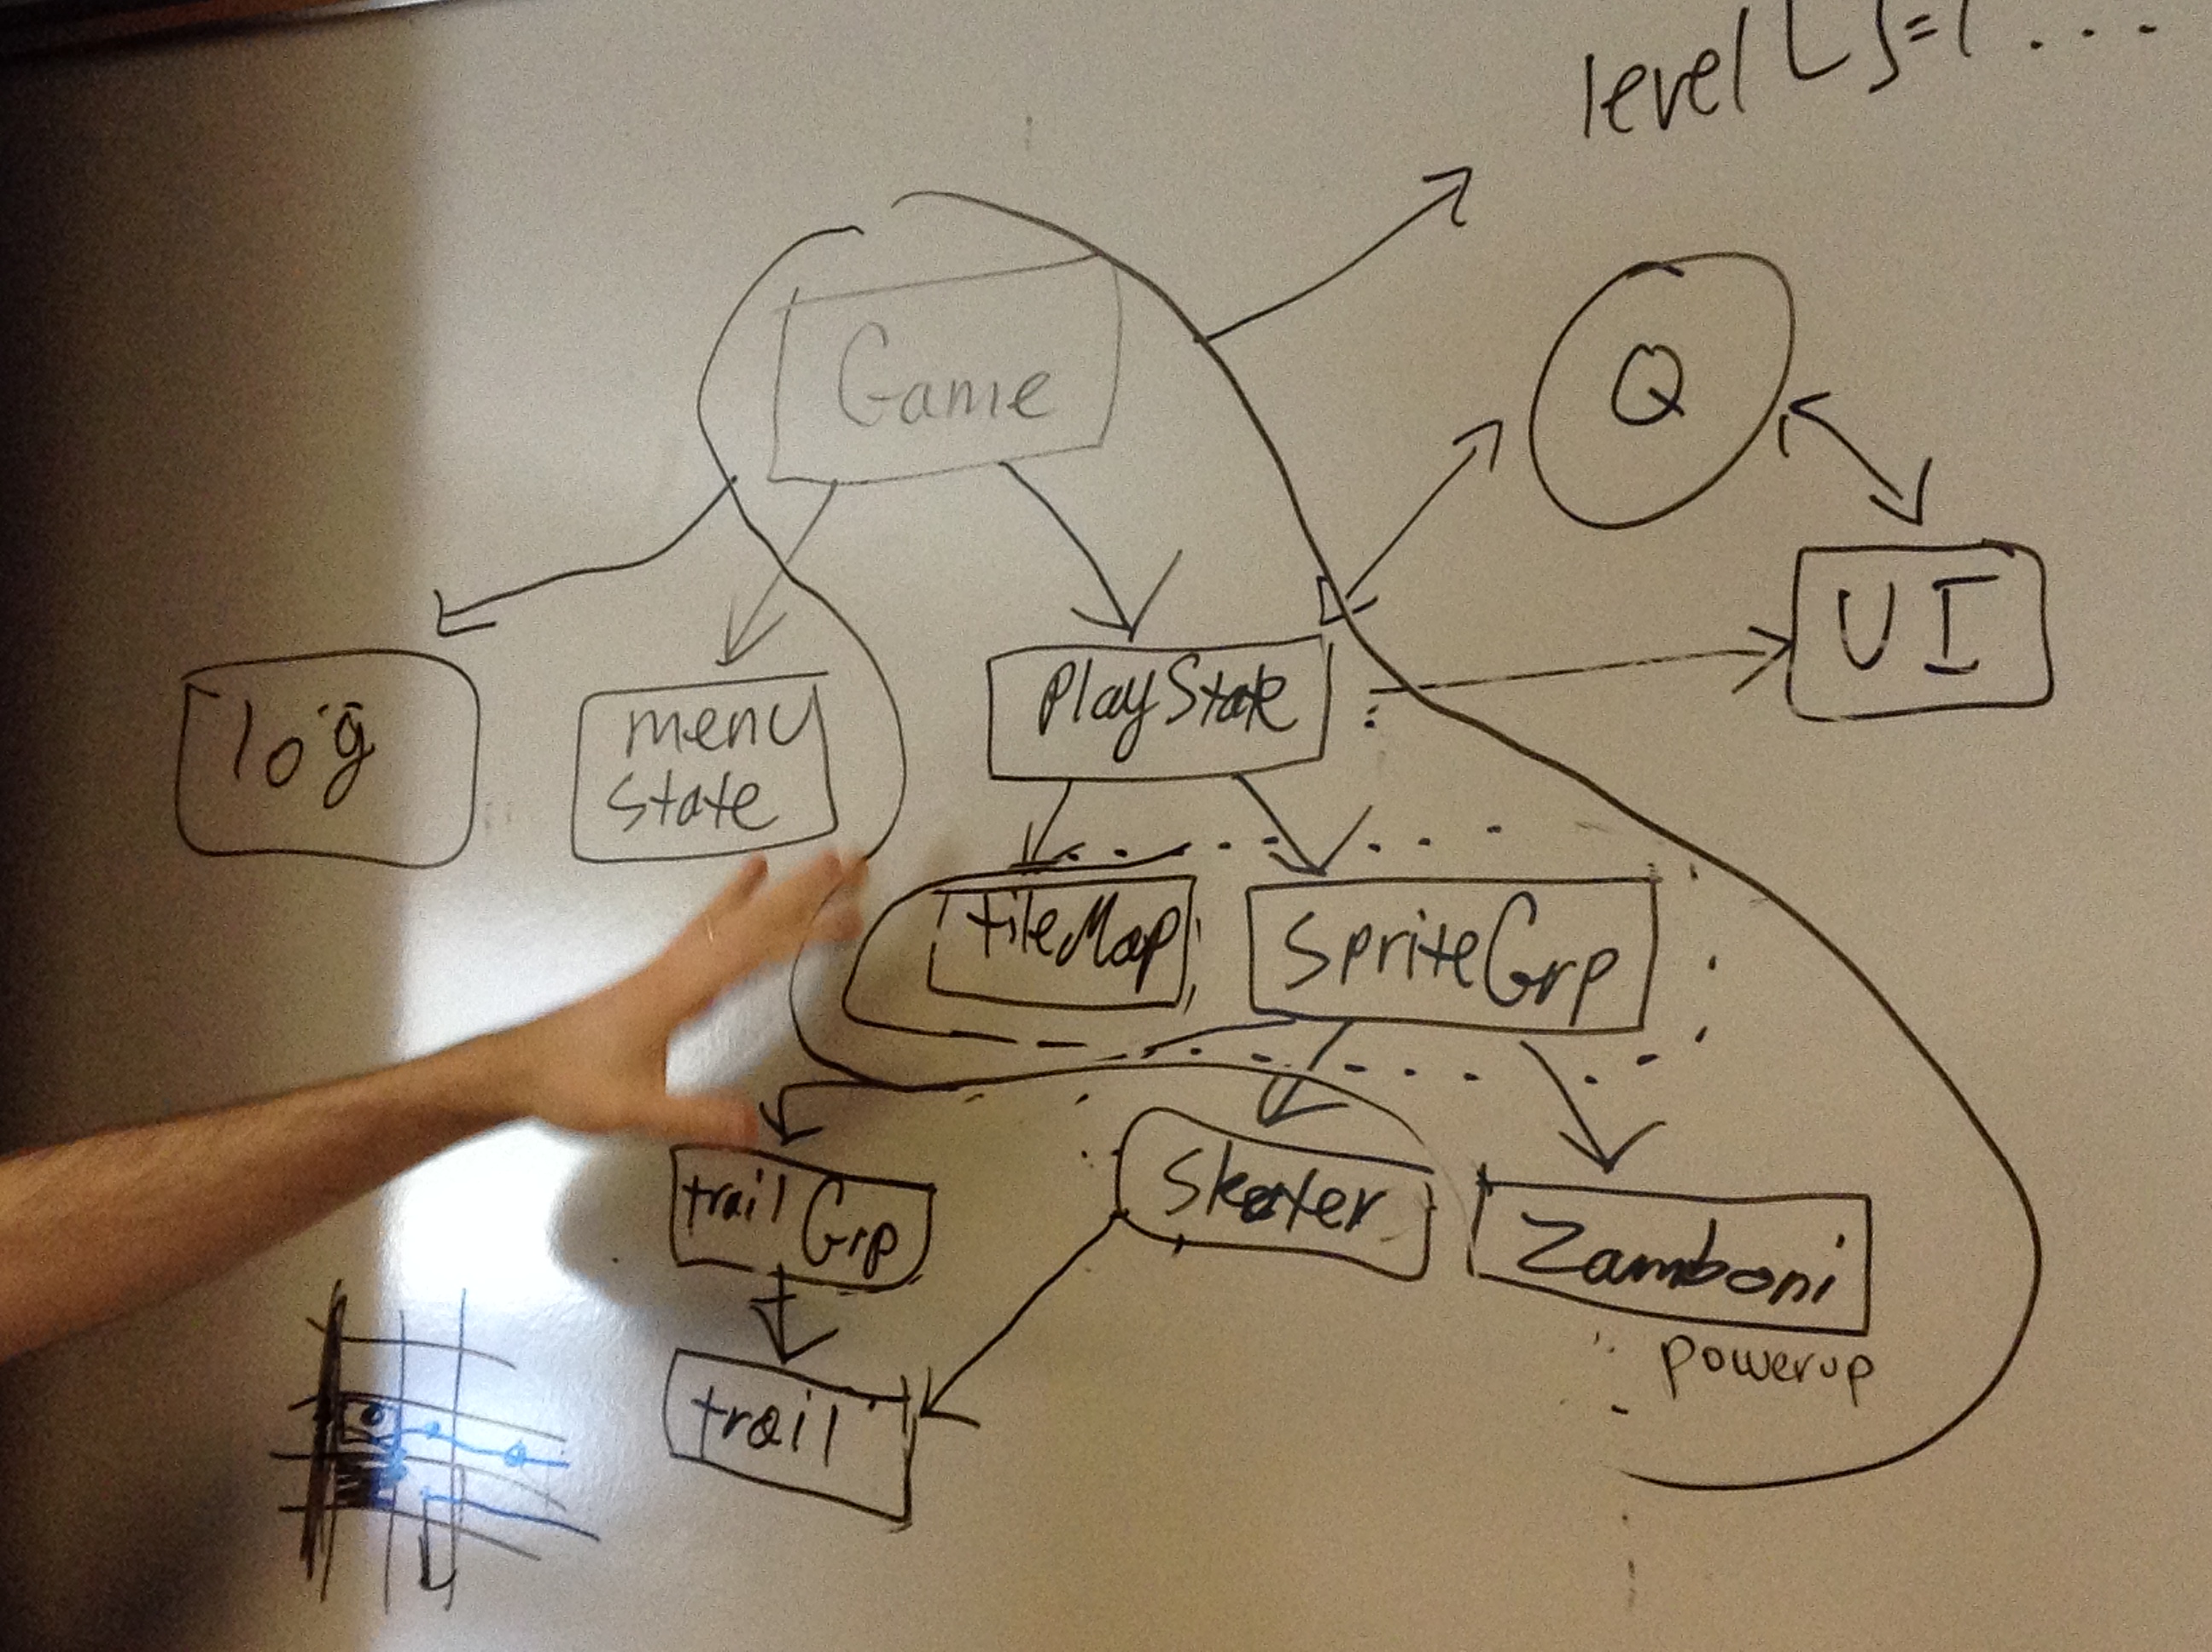 level []=1 ...
Game
Q
UI
log
menu
state
PlayState
tileMap
SpriteGrp
trail
Grp
Skater
Zamboni
powerup
trail